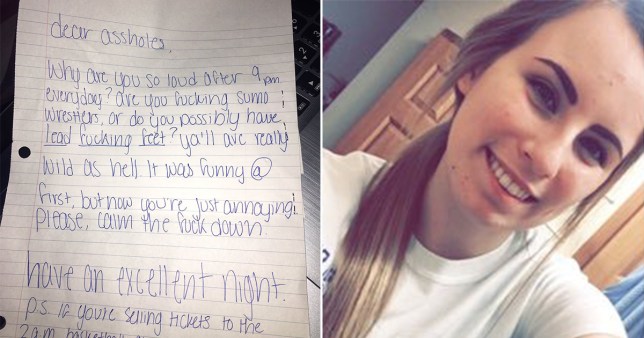 dear assholes,
Why are you so loud after 9pm
everyday? are you fucking sumo
wrestlers, or do you possibly have
lead fucking feet? ya'll are really
wild as hell. It was funny @
first, but now you're just annoying!
please, calm the fuck down!
have an excellent night.
p.s. If you're selling tickets to the
2am basketball